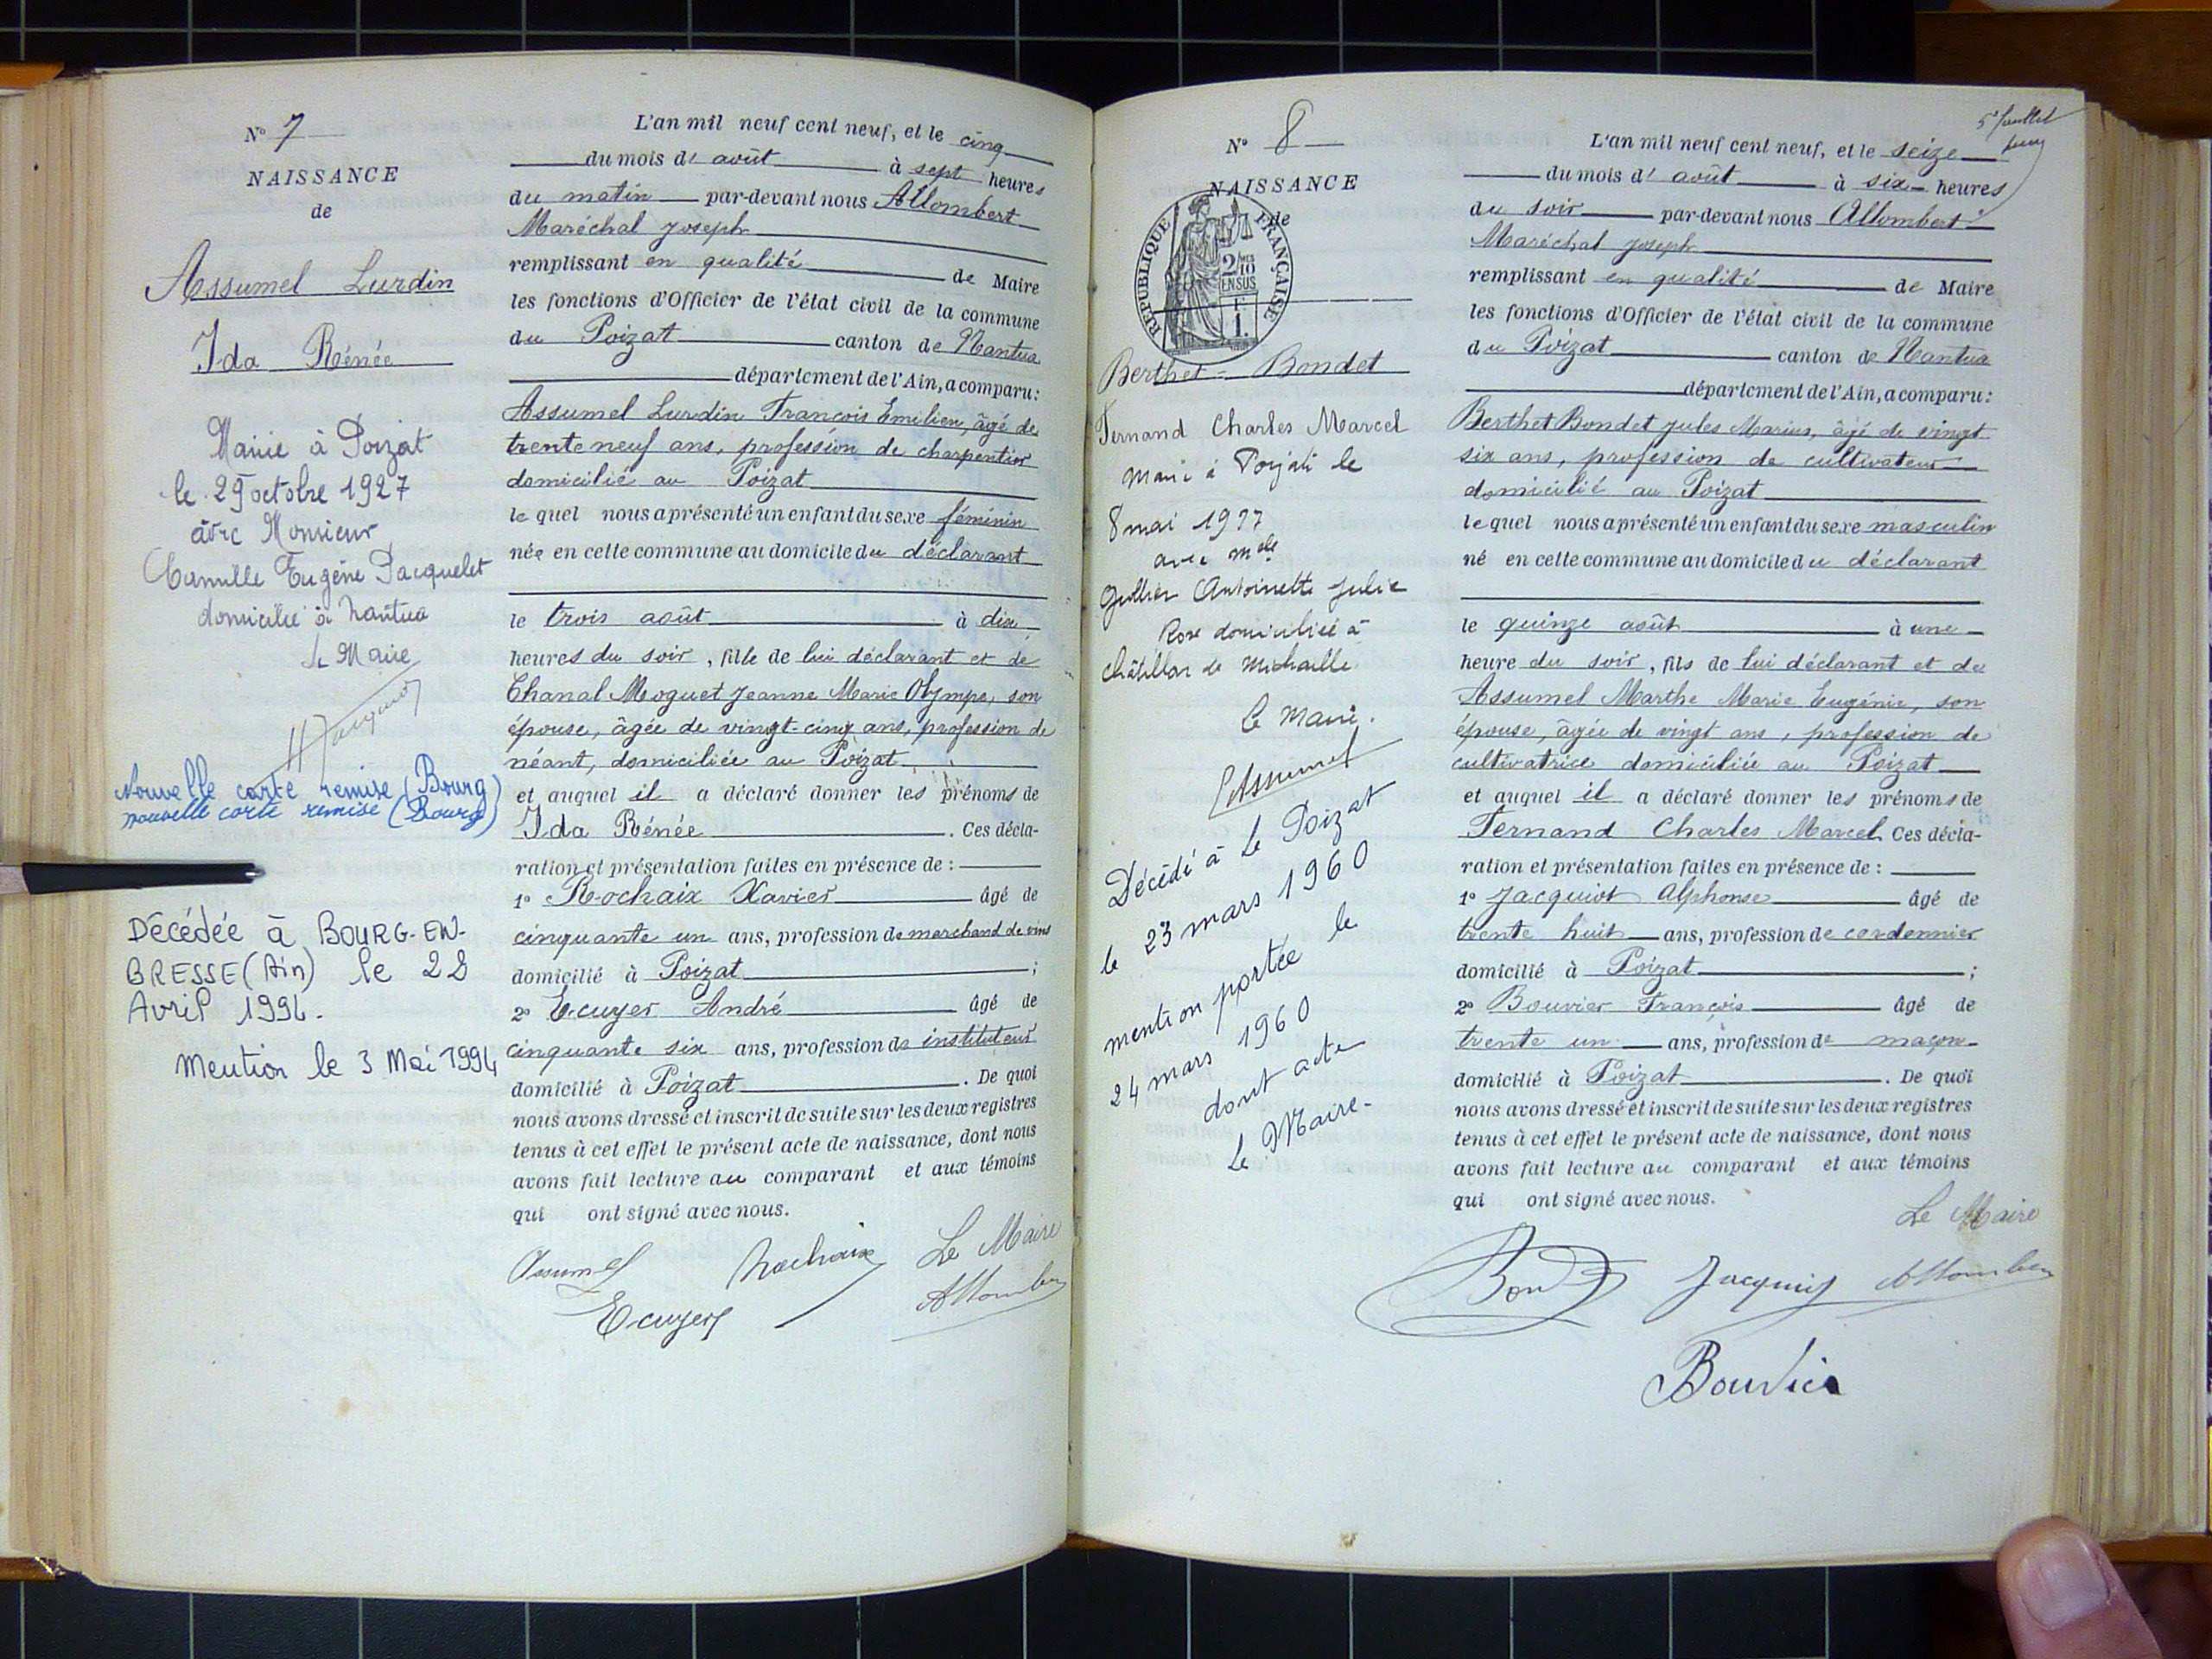 N° 7
NAISSANCE
de
Assumel Lurdin
Ida Rénée
Mariée à Poizat
le 29 octobre 1927
avec Monsieur
Camille Eugène Pacquelet
domicilié à Nantua
Le Maire
Nouvelle carte remise (Bourg)
nouvelle carte remise (Bourg)
Décédée à BOURG-EN-
BRESSE (Ain) le 28
Avril 1994.
Mention le 3 Mai 1994
L'an mil neuf cent neuf, et le cinq
du mois d' août à sept heures
du matin par-devant nous Allombert
Maréchal Joseph
remplissant en qualité de Maire
les fonctions d'Officier de l'état civil de la commune
du Poizat canton de Nantua
département de l'Ain, a comparu:
Assumel Lurdin François Emilien, âgé de
trente neuf ans, profession de charpentier
domicilié au Poizat
le quel nous a présenté un enfant du sexe féminin
née en cette commune au domicile du déclarant
le trois août à dix
heures du soir, fille de lui déclarant et de
Chanal Moguet Jeanne Marie Olympe, son
épouse, âgée de vingt-cinq ans, profession de
néant, domiciliée au Poizat
et auquel il a déclaré donner les prénoms de
Ida Rénée. Ces décla-
ration et présentation faites en présence de :
1° Rochaix Xavier âgé de
cinquante un ans, profession de marchand de vins
domicilié à Poizat ;
2° Ecuyer André âgé de
cinquante six ans, profession de instituteur
domicilié à Poizat. De quoi
nous avons dressé et inscrit de suite sur les deux registres
tenus à cet effet le présent acte de naissance, dont nous
avons fait lecture au comparant et aux témoins
qui ont signé avec nous.
Assumel Rochaix Le Maire
Ecuyer Allombert
5e feuillet
N° 8
NAISSANCE
de
REPUBLIQUE FRANÇAISE
2/10 EN SUS
1.
Berthet-Bondet
Fernand Charles Marcel
Marié à Poizat le
8 mai 1937
avec Melle
Antoinette Julie
Rose domiciliée à
Châtillon de Michaille
Le Maire.
Assumel
Décédé à Le Poizat
le 23 mars 1960
mention portée le
24 mars 1960
dont acte
Le Maire-
L'an mil neuf cent neuf, et le seize
du mois d' août à six heures
du soir par-devant nous Allombert
Maréchal Joseph
remplissant en qualité de Maire
les fonctions d'Officier de l'état civil de la commune
du Poizat canton de Nantua
département de l'Ain, a comparu:
Berthet Bondet Jules Marius, âgé de vingt
six ans, profession de cultivateur
domicilié au Poizat
le quel nous a présenté un enfant du sexe masculin
né en cette commune au domicile du déclarant
le quinze août à une
heure du soir, fils de lui déclarant et de
Assumel Marthe Marie Eugénie, son
épouse, âgée de vingt ans, profession de
cultivatrice domiciliée au Poizat
et auquel il a déclaré donner les prénoms de
Fernand Charles Marcel Ces décla-
ration et présentation faites en présence de :
1° Jacquiot Alphonse âgé de
trente huit ans, profession de cordonnier
domicilié à Poizat ;
2° Bouvier François âgé de
trente un ans, profession de maçon
domicilié à Poizat. De quoi
nous avons dressé et inscrit de suite sur les deux registres
tenus à cet effet le présent acte de naissance, dont nous
avons fait lecture au comparant et aux témoins
qui ont signé avec nous.
Le Maire
Jacquiot Allombert
Bouvier